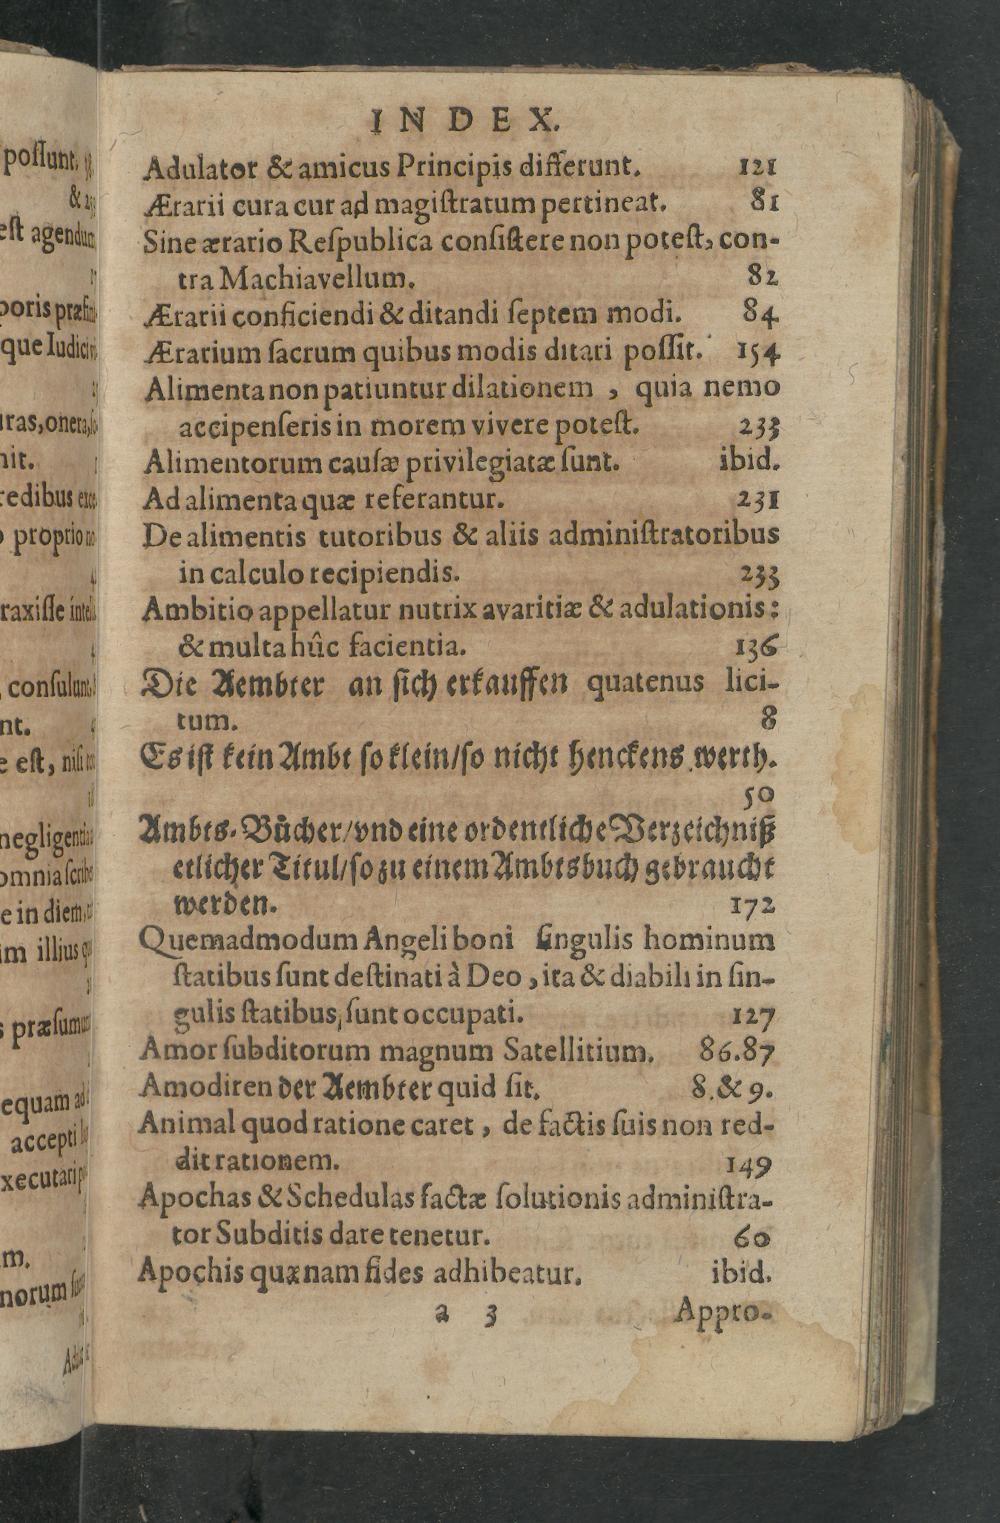 INDEX.
Adulator & amicus Principis differunt. 121
Ærarii cura cur ad magiſtratum pertineat. 81
Sine ærario Reſpublica conſiſtere non poteſt, con-
tra Machiavellum. 82
Ærarii conficiendi & ditandi ſeptem modi. 84
Ærarium ſacrum quibus modis ditari poſſit. 154
Alimenta non patiuntur dilationem, quia nemo
accipenſeris in morem vivere poteſt. 233
Alimentorum cauſæ privilegiatæ ſunt. ibid.
Ad alimenta quæ referantur. 231
De alimentis tutoribus & aliis adminiſtratoribus
in calculo recipiendis. 233
Ambitio appellatur nutrix avaritiæ & adulationis:
& multa hûc facientia. 136
Die Aembter an ſich erkauffen quatenus lici-
tum. 8
Es iſt kein Ambt ſo klein/ſo nicht henckens werth.
50
Ambts-Bůcher/vnd eine ordentliche Verzeichniß
etlicher Titul/ſo zu einem Ambtsbuch gebraucht
werden. 172
Quemadmodum Angeli boni ſingulis hominum
ſtatibus ſunt deſtinati à Deo, ita & diabili in ſin-
gulis ſtatibus, ſunt occupati. 127
Amor ſubditorum magnum Satellitium. 86.87
Amodiren der Aembter quid ſit. 8.& 9.
Animal quod ratione caret, de factis ſuis non red-
dit rationem. 149
Apochas & Schedulas factæ ſolutionis adminiſtra-
tor Subditis dare tenetur. 60
Apochis quænam fides adhibeatur. ibid.
a 3 Appro-